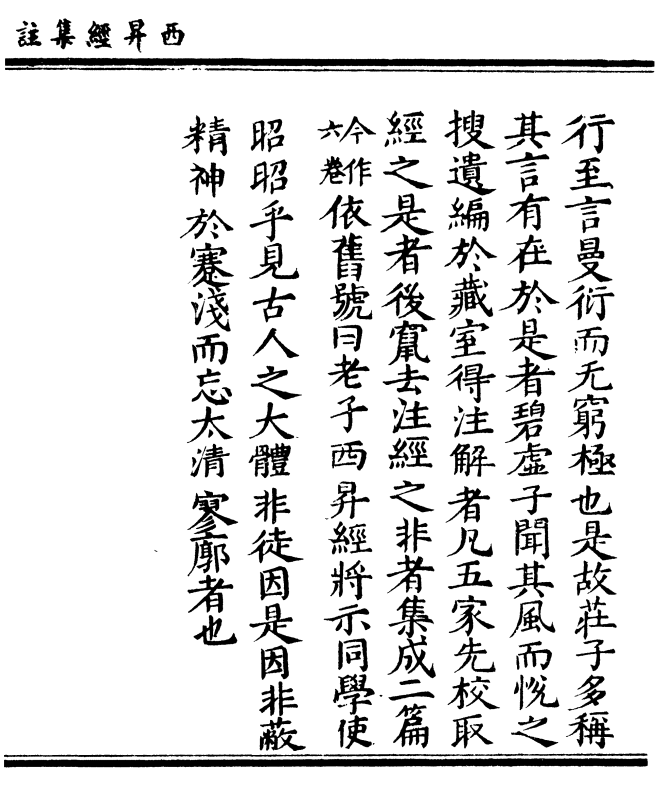 西昇經集註
行至言曼衍而无窮極也是故莊子多稱
其言有在於是者碧虛子聞其風而悅之
搜遺編於藏室得注解者凡五家先校取
經之是者後竄去注經之非者集成二篇
今作六卷依舊號曰老子西昇經將示同學使
昭昭乎見古人之大體非徒因是因非蔽
精神於蹇淺而忘太清寥廓者也